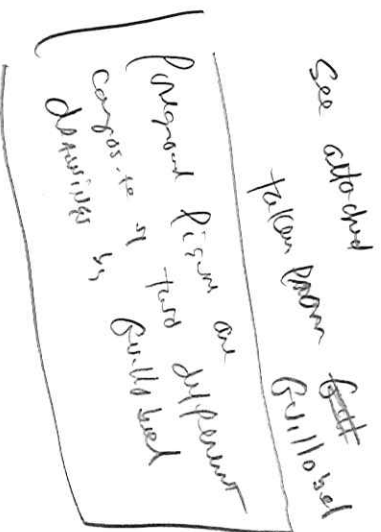 See attached
taken from Guillobel
Foreground figures are
composite of two different
drawings by Guillobel